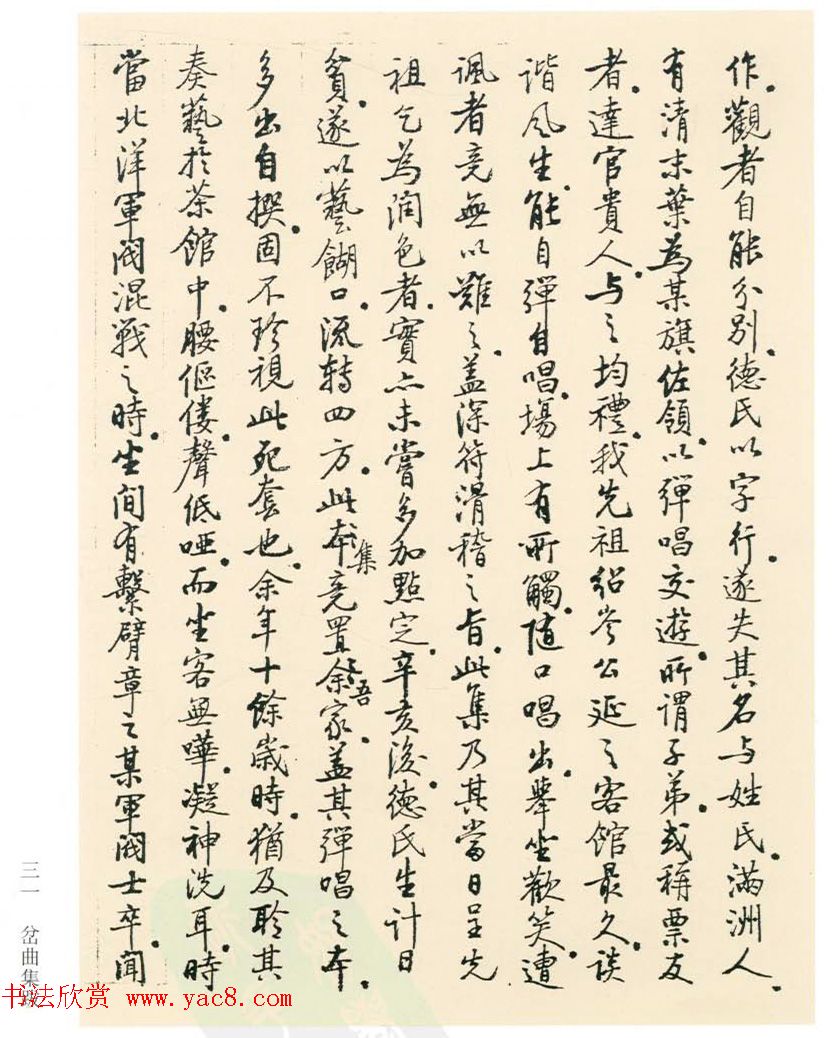 作。觀者自能分別。德氏以字行。遂失其名与姓氏。滿洲人。
有清末葉為某旗佐領。以彈唱交遊。所謂子弟。或稱票友
者。達官貴人。与之均禮。我先祖紹岑公延之客館最久。談
諧風生。能自彈自唱。場上有所觸。随口唱出。舉坐歡笑。遭
諷者竟無以難之。盖深符滑稽之旨。此集乃其當日呈先
祖乞為润色者。實亦未嘗多加點定。辛亥後。德氏生計日
貧。遂以藝餬口。流转四方。此本集竟置余吾家。盖其彈唱之本。
多出自撰。固不珍視此死套也。余年十餘歲時。猶及聆其
奏藝於茶館中。腰傴僂。聲低啞。而坐客無嘩。凝神洗耳。時
當北洋軍閥混戰之時。坐间有繫臂章之某軍閥士卒。闻
三一 岔曲集跋
书法欣赏 www.yac8.com